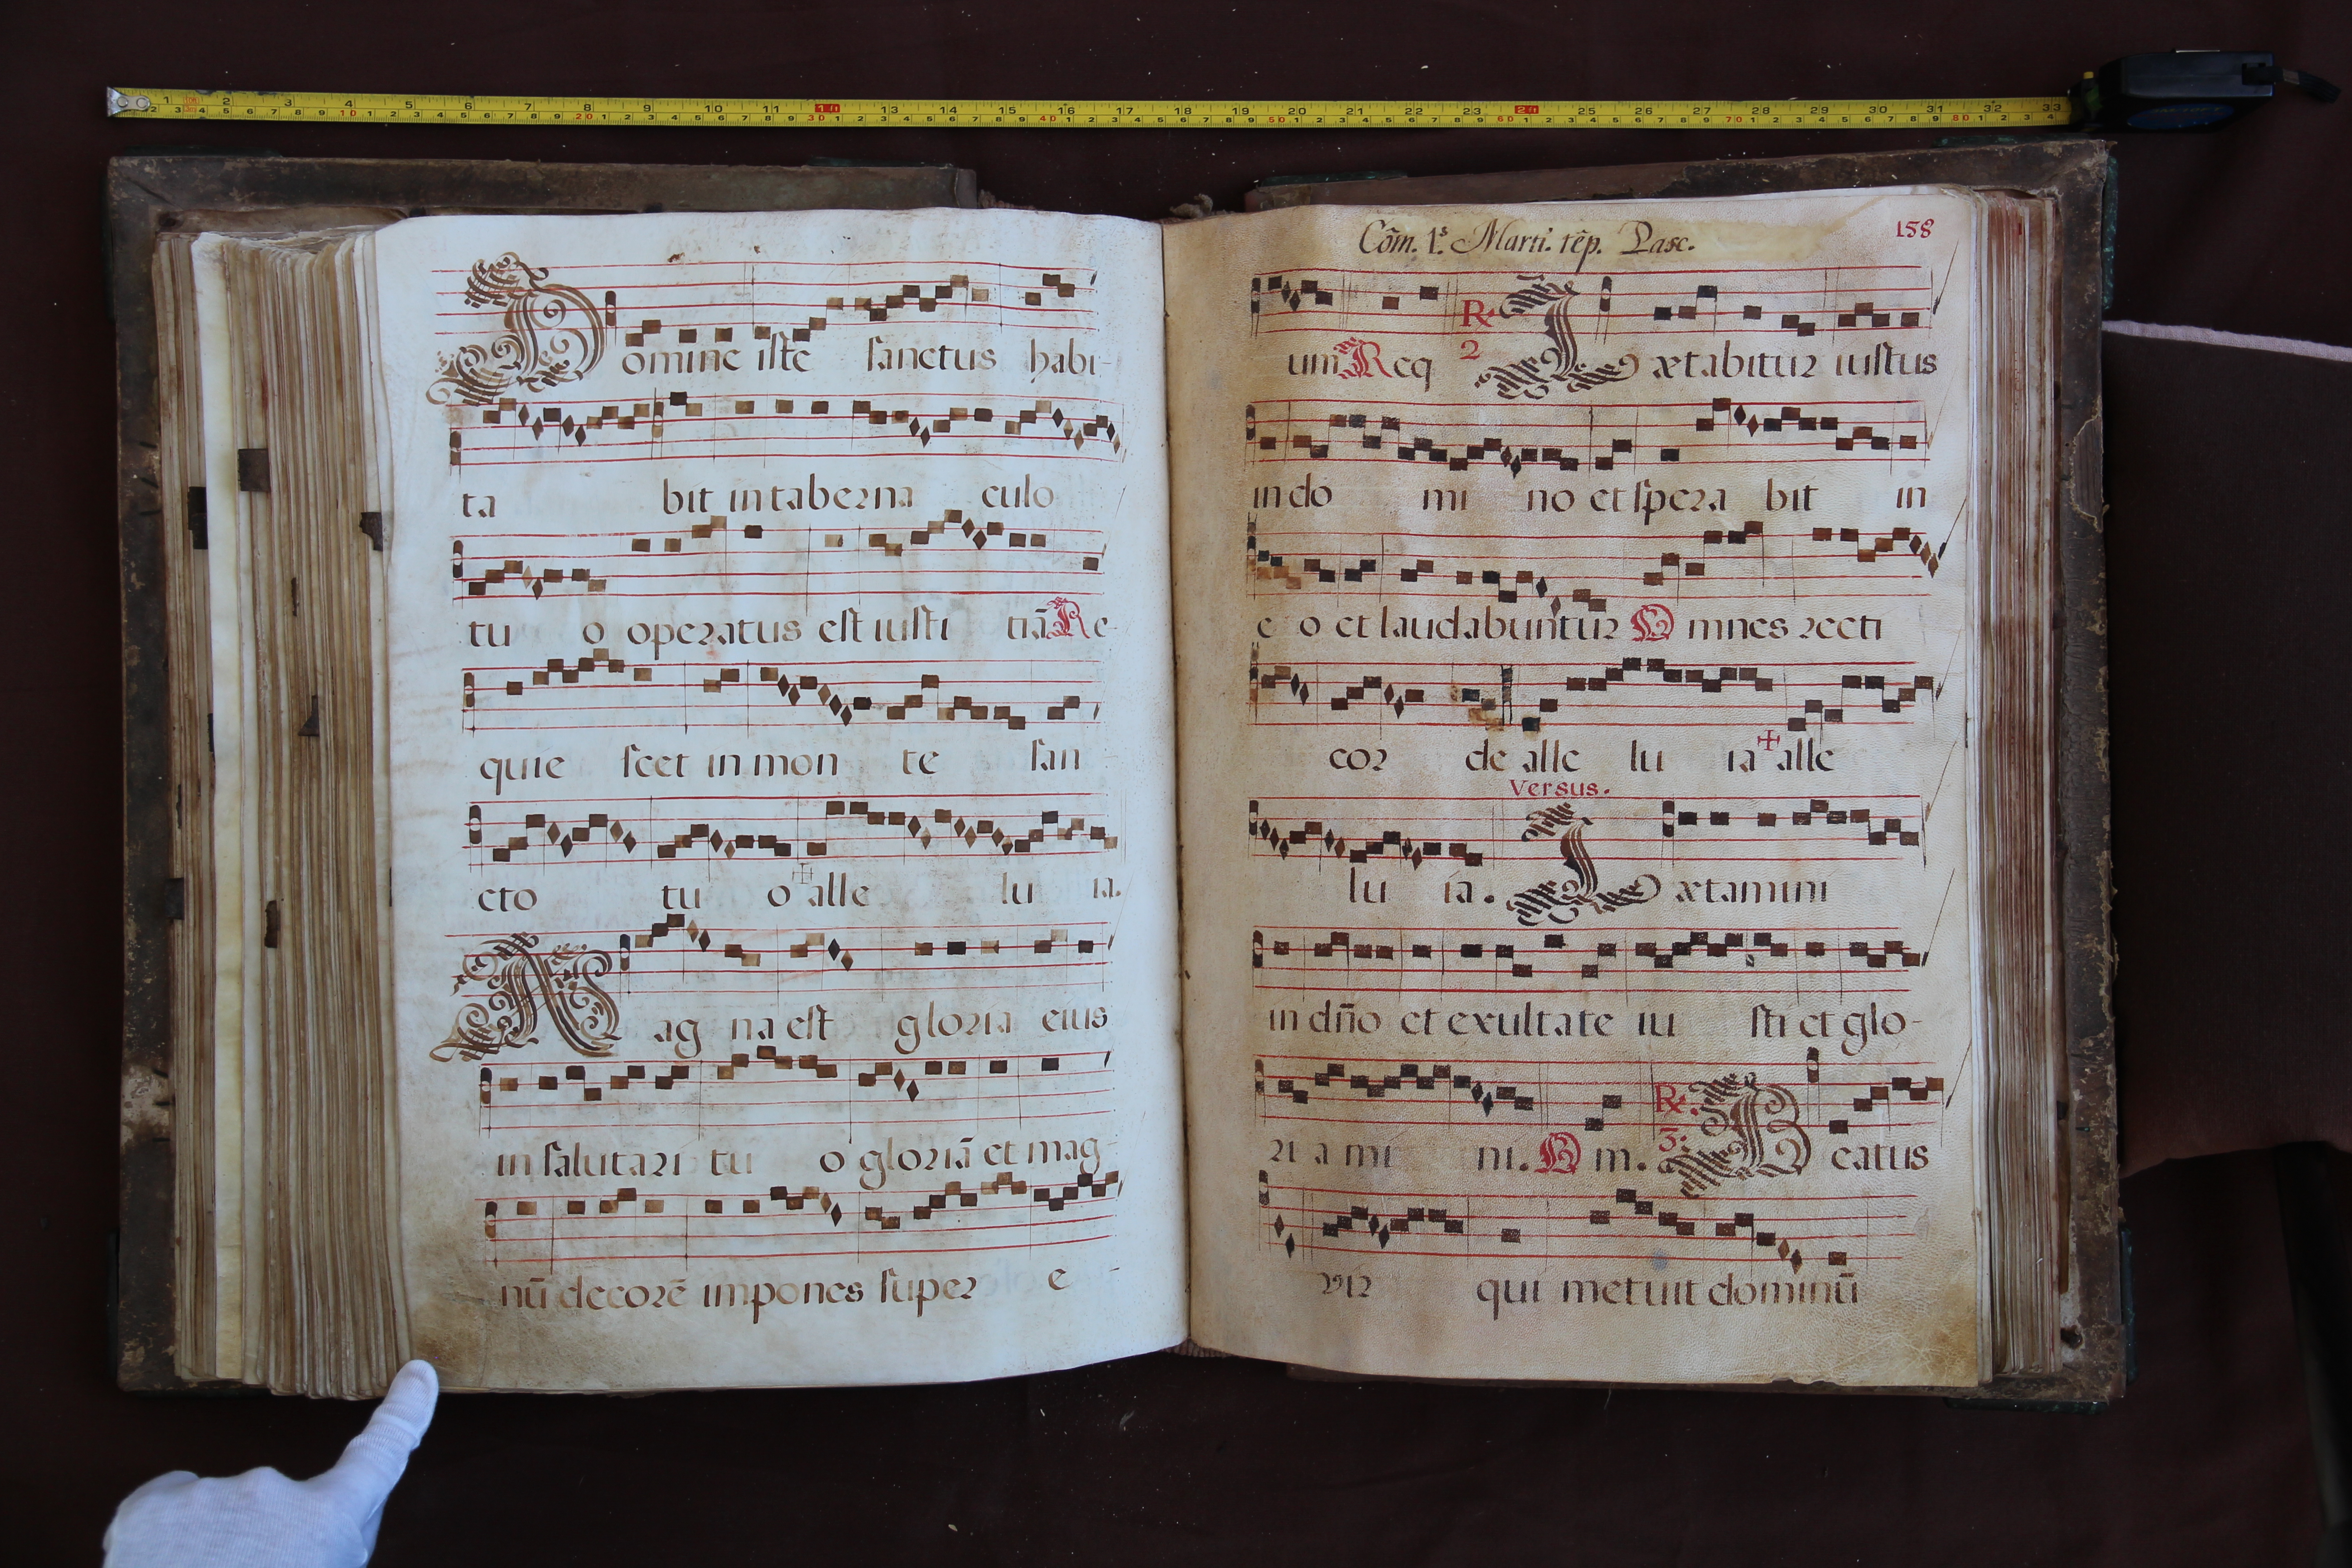 Domine iste sanctus habi-
ta bit in taberna culo
tu o operatus est iusti tiā Re-
quie scet in mon te san
cto tu o + alle lu ia.
Mag na est gloria eius
in salutari tu o gloriā et mag-
nū decorē impones super e-
Cōm. 1.s Marti. tēp. Pasc.
158
um Req ℟ 2 Lætabitur iustus
in do mi no et spera bit in
e o et laudabuntur Omnes recti
cor de alle lu ia + alle
Versus.
lu ia. Lætamini
in dño et exultate iu sti et glo-
ri a mi ni. Om. ℟. 3: Beatus
vir qui metuit dominū